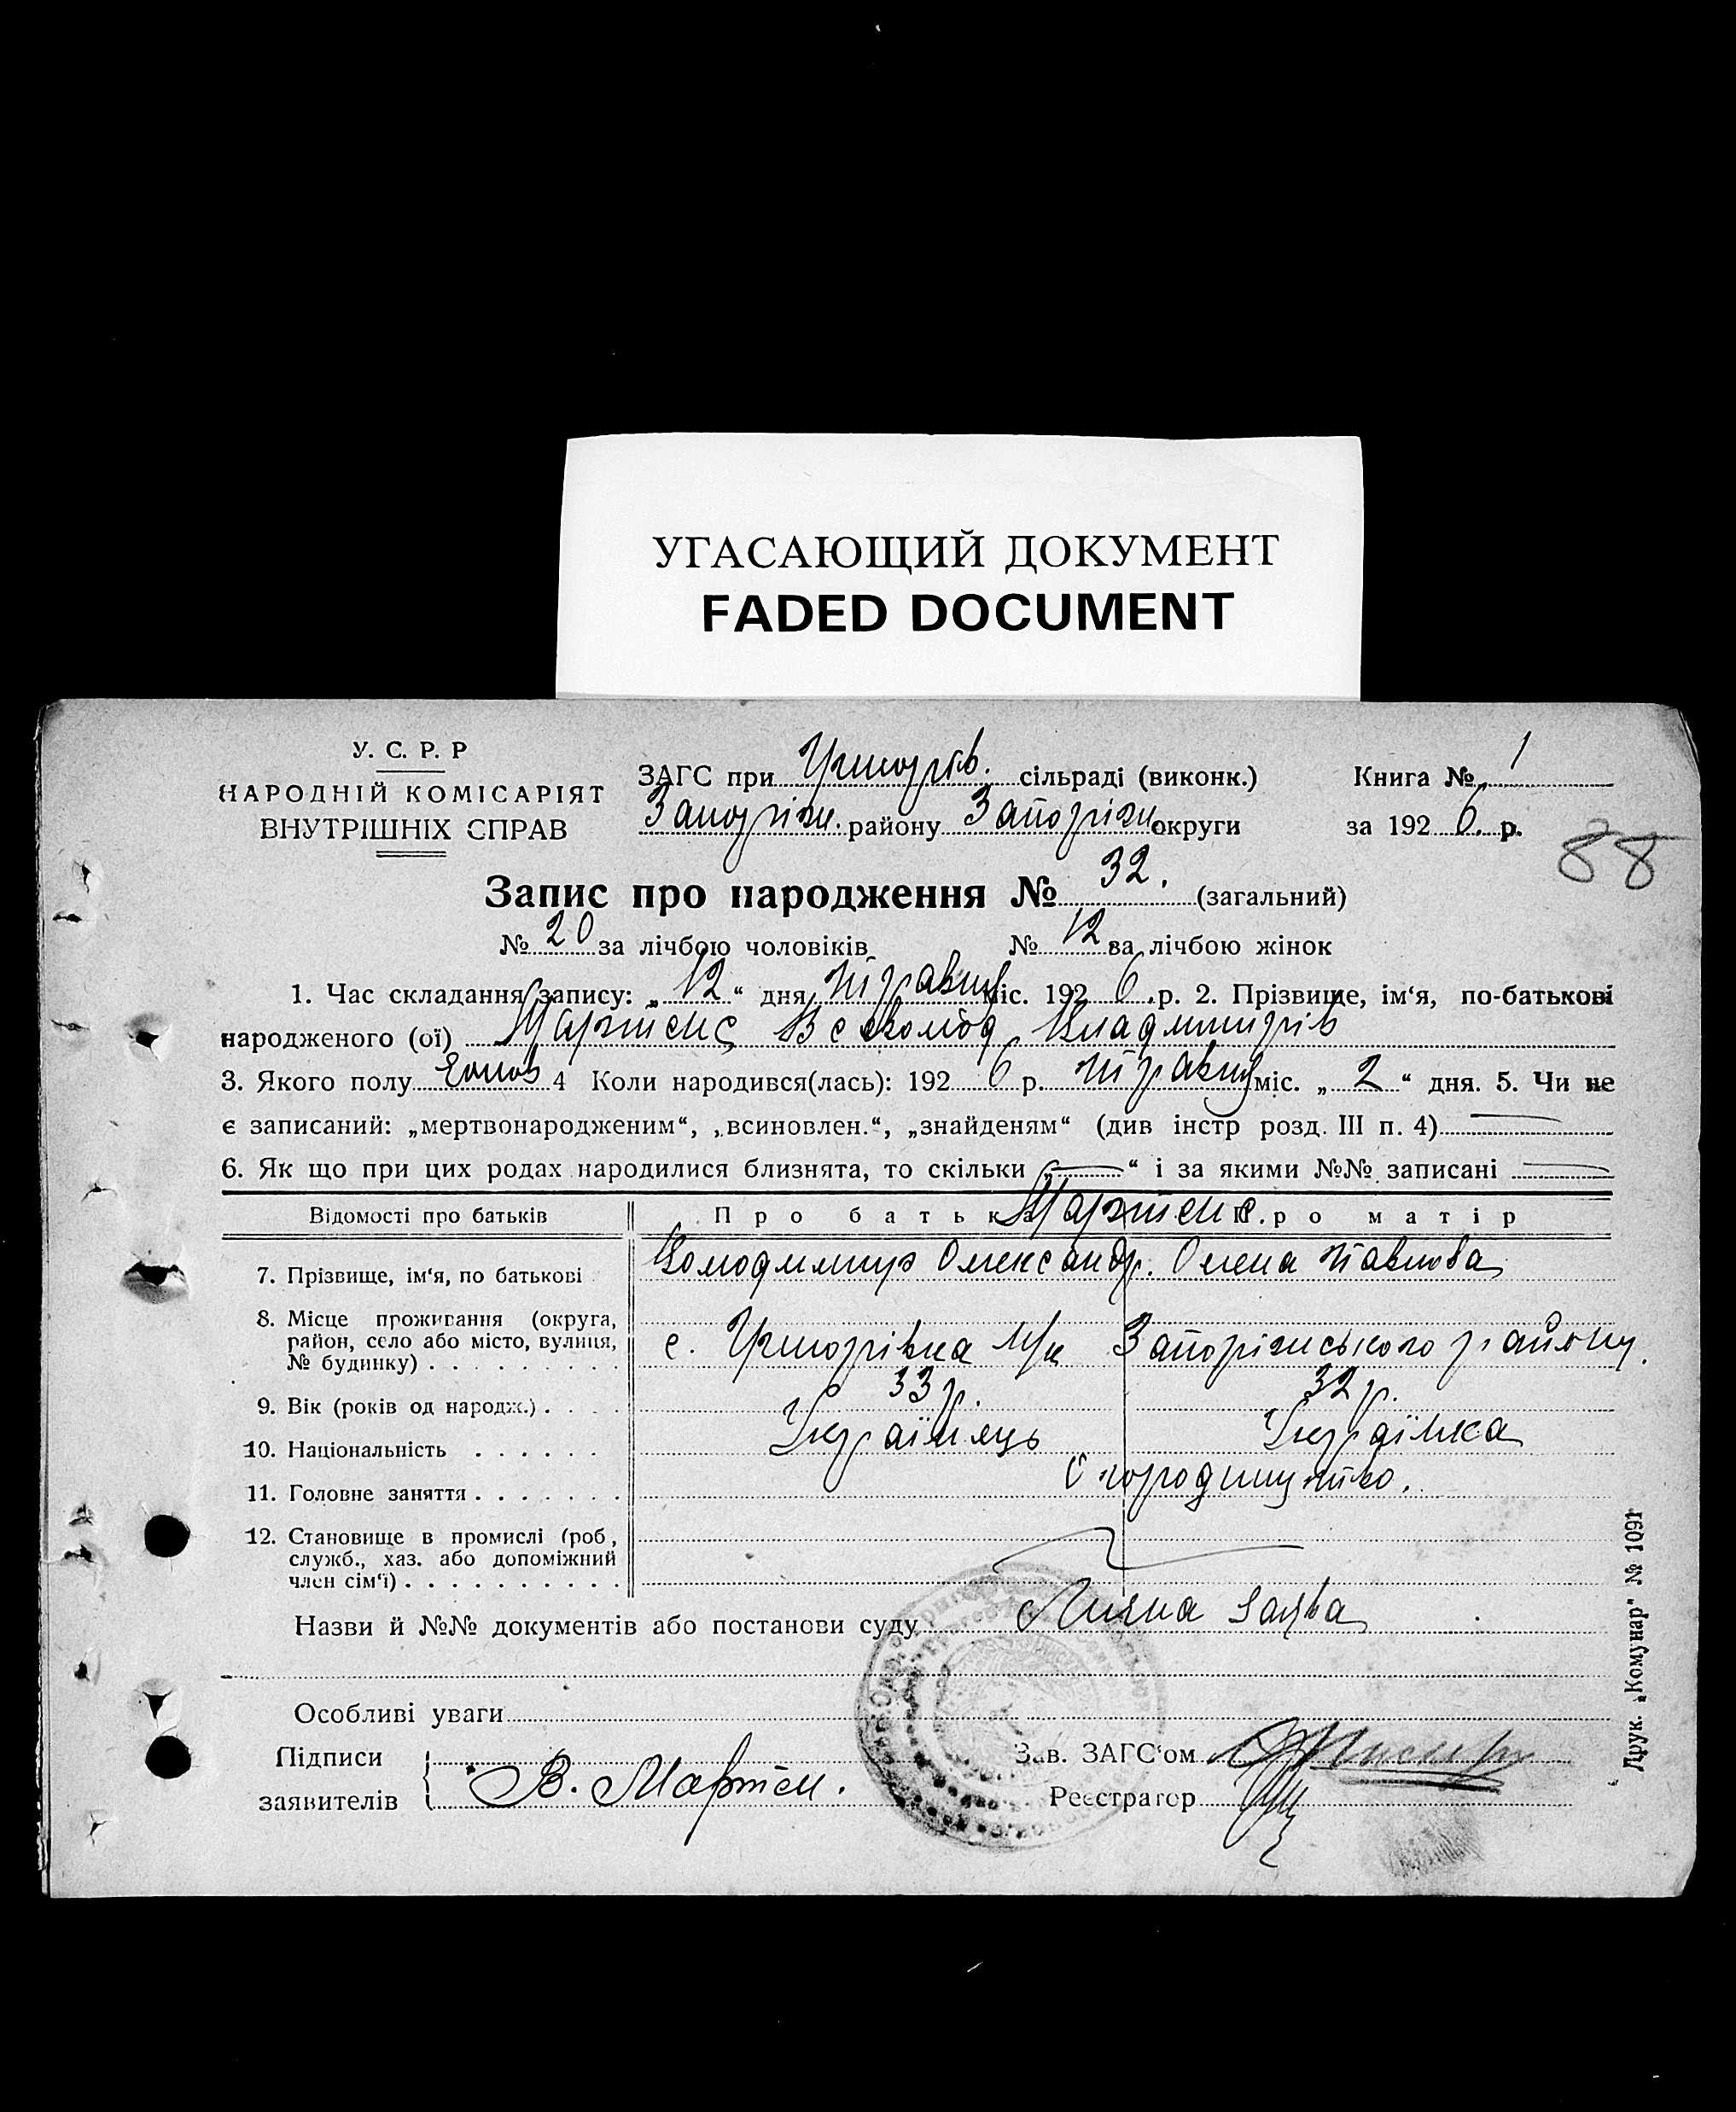 УГАСАЮЩИЙ ДОКУМЕНТ
FADED DOCUMENT
У. С. Р. Р
НАРОДНІЙ КОМІСАРІЯТ
ВНУТРІШНІХ СПРАВ
ЗАГС при сільраді (виконк.)
Запоріж. району Запоріж округи
Книга № 1
за 192 6. р.
88
Запис про народження № 32. (загальний)
№ 20 за лічбою чоловіків № 12 за лічбою жінок
1. Час складання запису: „ 12 “ дня травня міс. 192 6 р. 2. Прізвище, ім‘я, по-батькові
народженого (ої) Мартенс Всеволод Владимирів
3. Якого полу чолов 4 Коли народився(лась): 192 6 р. травня міс. „ 2 “ дня. 5. Чи не
є записаний: „мертвонародженим“, „всиновлен.“, „знайденям“ (див інстр розд. III п. 4)
6. Як що при цих родах народилися близнята, то скільки „ “ і за якими №№ записані
Відомості про батьків Про батька Мартенс. Про матір
7. Прізвище, ім‘я, по батькові Володимир Олександр. Олена Павлова
8. Місце проживання (округа,
район, село або місто, вулиця,
№ будинку) с. Запоріжського району.
9. Вік (років од народж.) 33 р. 32 р.
10. Національність Українець Українка
11. Головне заняття Огородництво.
12. Становище в промислі (роб,
служб., хаз. або допоміжний
член сім‘ї)
Назви й №№ документів або постанови суду Лична заява
Особливі уваги
Підписи
заявителів В. Мартен.
Зав. ЗАГС‘ом
Реєстратор
Друк. „Комунар“ № 1091